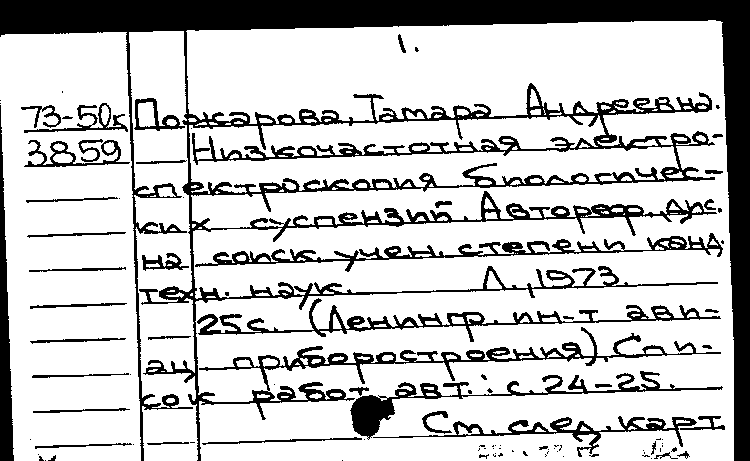 1.
73-50к Пожарова, Тамара Андреевна.
3859 Низкочастотная электро-
спектроскопия биологичес-
ких суспензий. Автореф. дис.
на соиск. учен. степени канд.
техн. наук. Л., 1973.
25с. (Ленингр. ин-т ави-
ац. приборостроения). Спи-
сок работ авт.: с. 24-25.
См. след. карт.